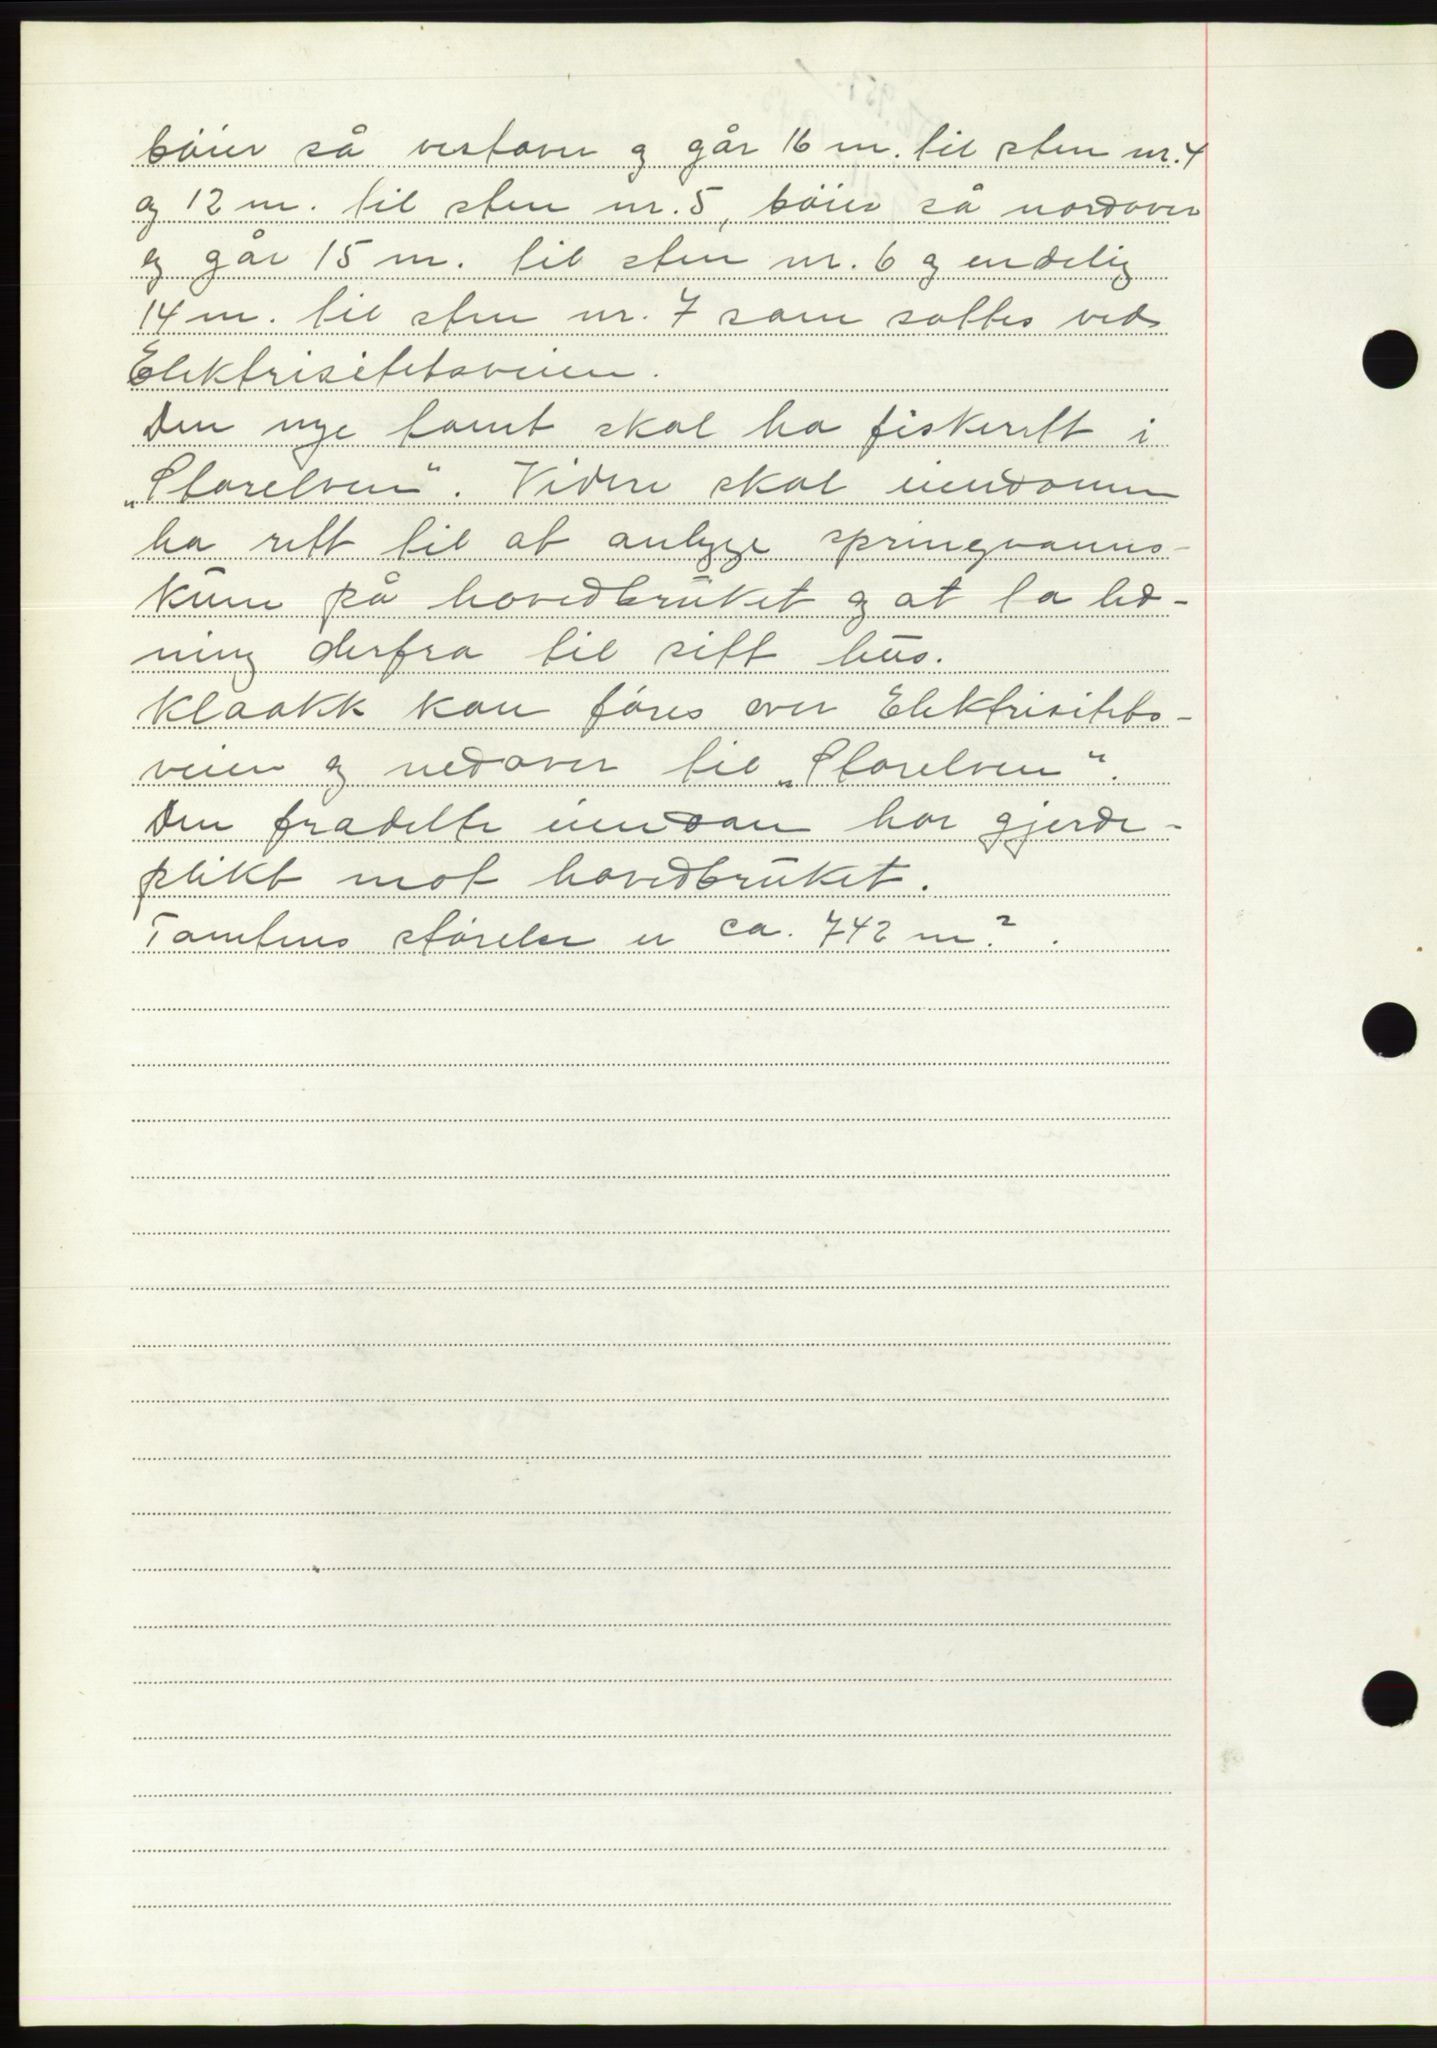 bøier så vestover og går 16 m. til sten nr. 4
og 12 m. til sten nr. 5, bøier så nordover
og går 15 m. til sten nr. 6 og endelig
14 m. til sten nr. 7 som settes ved
Elektrisitetsveien.
Den nye tomt skal ha fiskerett i
„Storelven“. Videre skal eiendommen
ha rett til at anlegge springvanns-
kum på hovedbruket og at ta led-
ning derfra til sitt hus.
Kloakk kan føres over Elektrisitets-
veien og nedover til „Storelven“.
Den fradelte eiendom har gjerde-
plikt mot hovedbruket.
Tomtens størelse er ca. 742 m.².